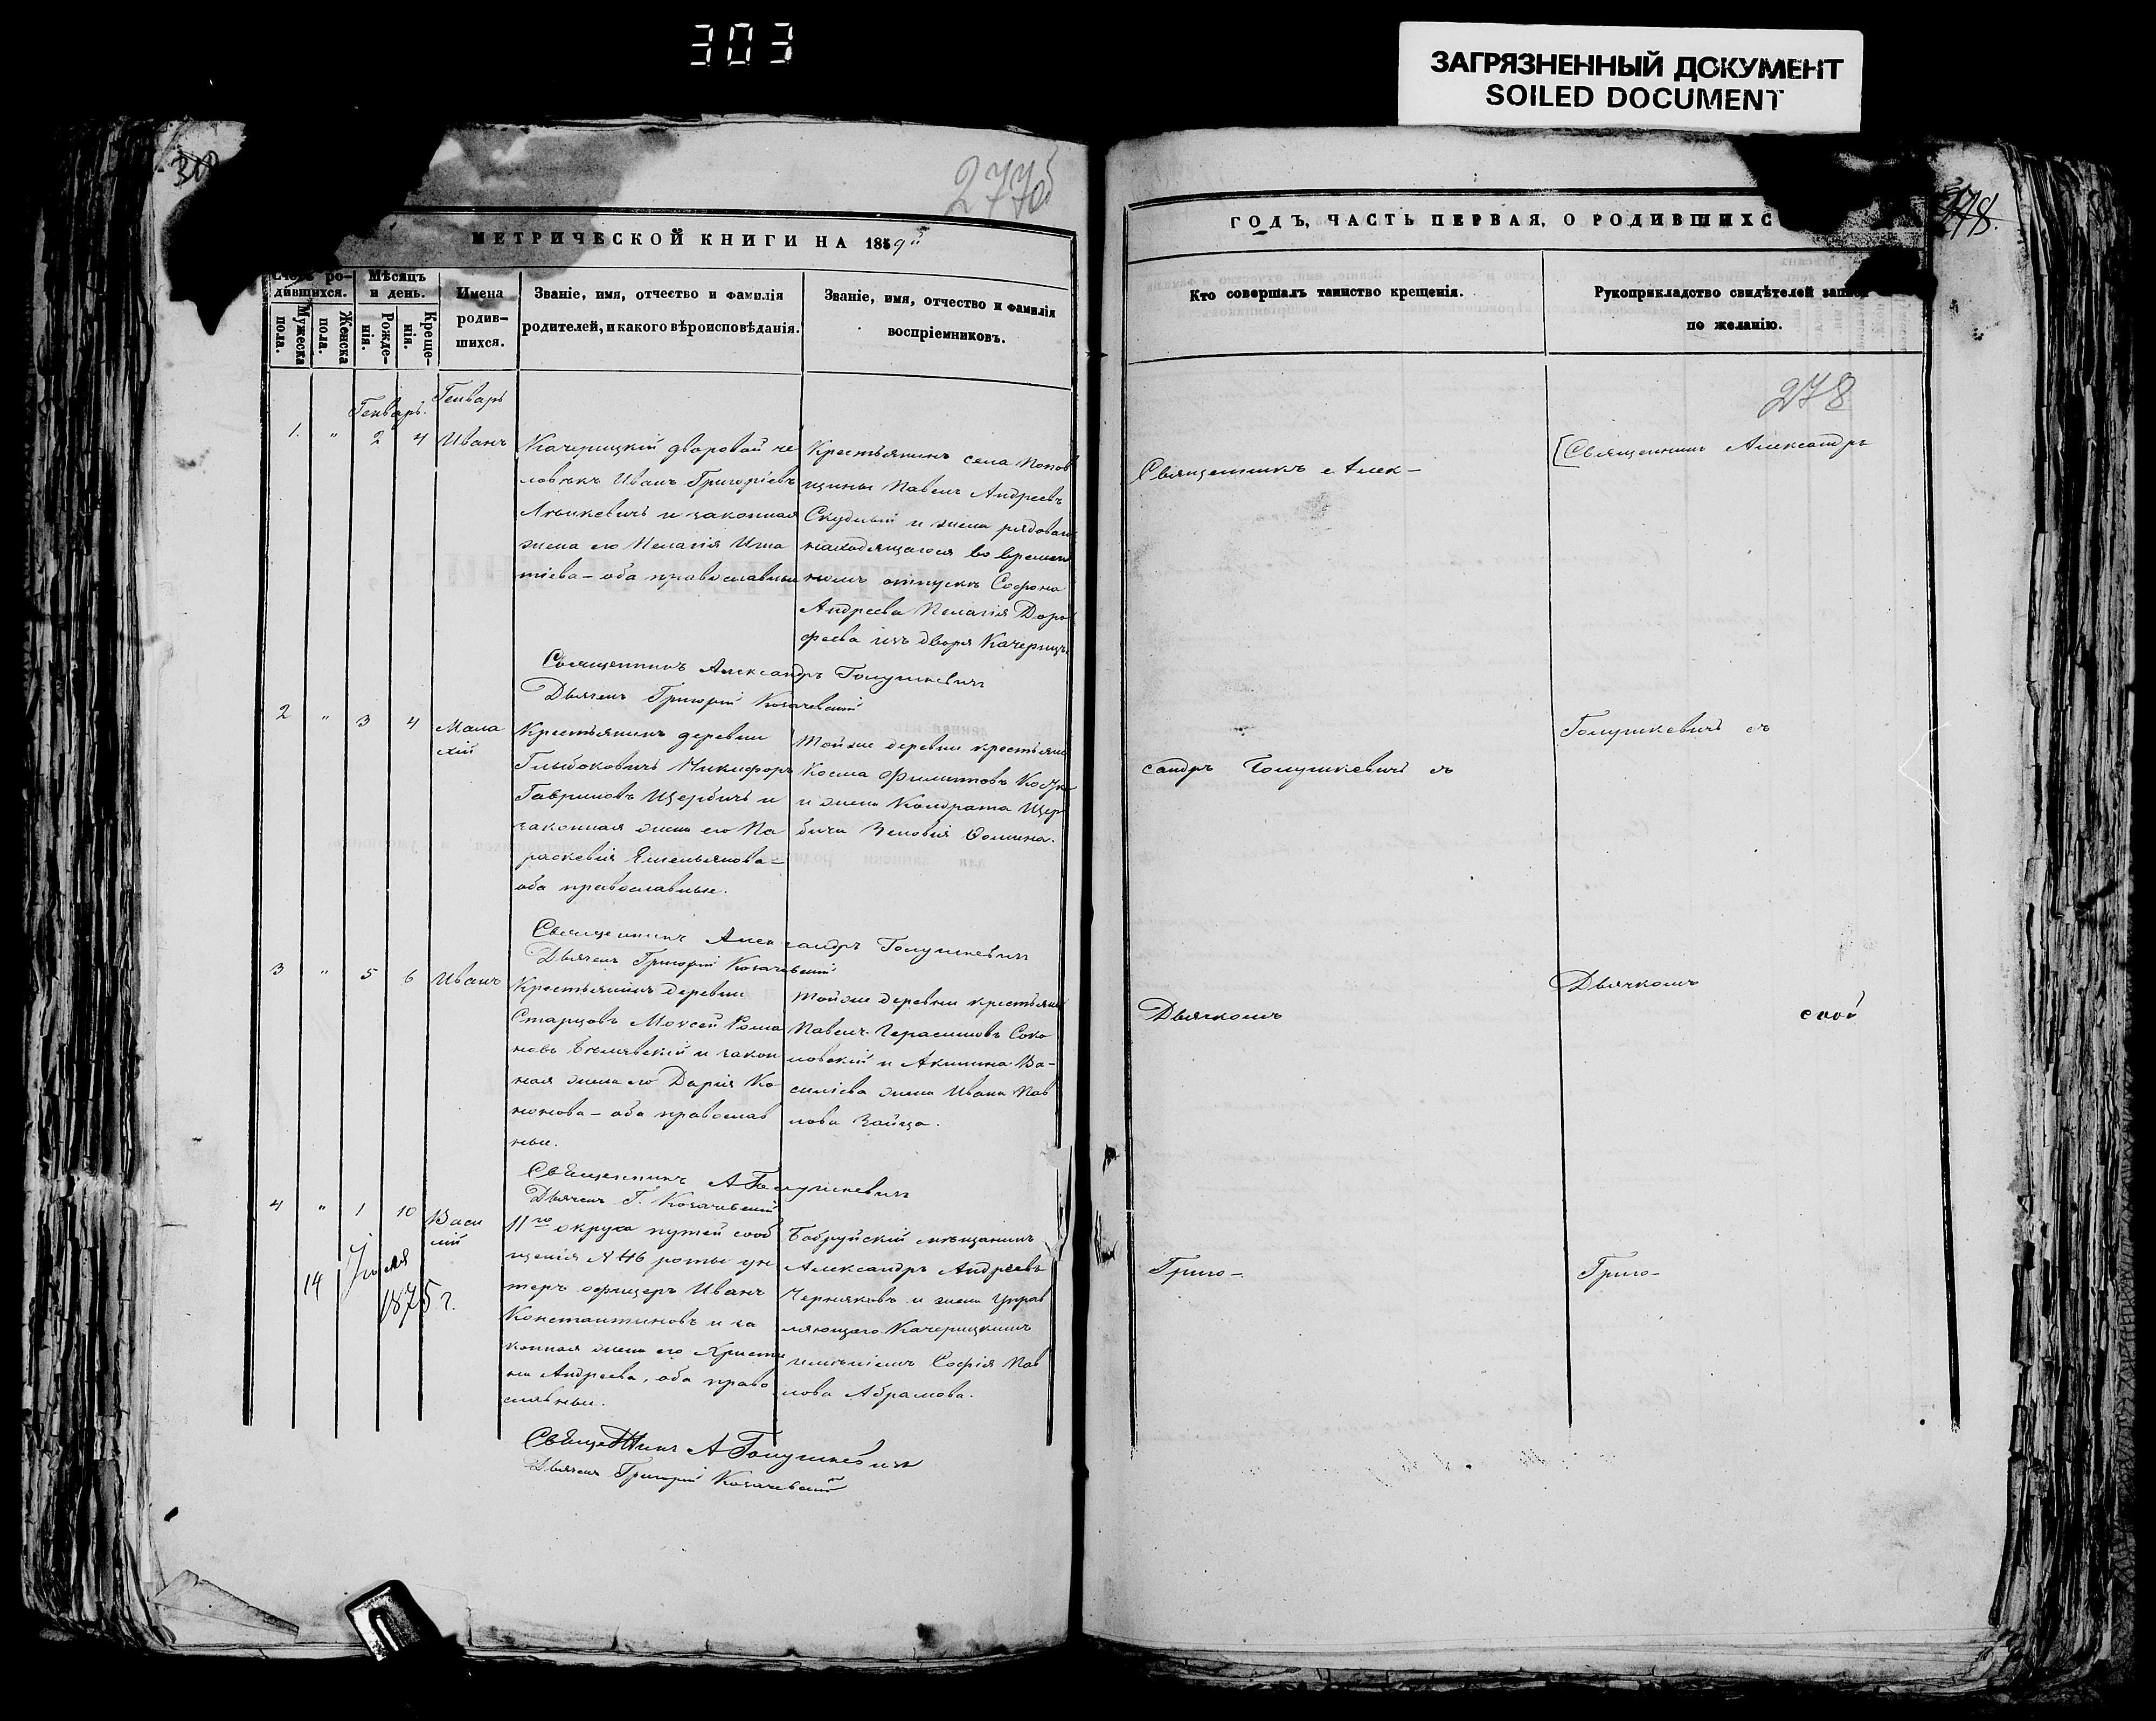 303
ЗАГРЯЗНЕННЫЙ ДОКУМЕНТ
SOILED DOCUMENT
277об
МЕТРИЧЕСКОЙ КНИГИ НА 1859й
Счетъ ро-
дившихся.
Мужеска
пола.
Женска
пола.
Мѣсяцъ
и день.
Рожде-
нія.
Креще-
нія.
Имена
родив-
шихся.
Званіе, имя, отчество и фамилія
родителей, и какого вѣроисповѣданія.
Званіе, имя, отчество и фамилія
воспріемниковъ.
Генварь. Генварь
1. " 2 4 Иванъ
Качерицкій дворовой че
ловѣкъ Иванъ Григоріевъ
и законная
жена его Пелагія Игна
тіева – оба православные
Крестьянинъ села Попов
щины Павелъ Андреевъ
Скудный и жена рядоваго
находящагося во времен
номъ отпускѣ Софона
Андреева Пелагія Доро
феева изъ двора Качерицъ
Священникъ Александръ Голушкевичъ
Дьячекъ Григорій Козачевскій
2 " 3 4 Мала
хій
Крестьянинъ деревни
Глыбоковичъ Никифоръ
Гавриловъ Щербичъ и
законная жена его Па
раскевія Емельянова –
оба православные.
Тойже деревни крестьяни
Косма Филиповъ
и жена Кондрата Щер
бича Зеновія Фомина.
Священникъ Александръ Голушкевичъ
Дьячекъ Григорій Козачевскій
3 " 5 6 Иванъ
Крестьянинъ деревни
Старцовъ Моисей Рома
новъ Бѣлявскій и закон
ная жена его Дарія Ко
нонова – оба православ
ные.
Тойже деревни крестьяни
Павелъ Герасимовъ Соко
ловскій и Акилина Ва-
силіева жена Ивана Пав
лова Зайца.
Священникъ А Голушкевичъ
Дьячекъ Г. Козачевскій
4 " 1 10 Васи
лій
14 Июля
1875 г.
11го округа путей сооб
щенія N 46 роты ун
теръ офицеръ Иванъ
Константиновъ и за
конная жена его Христи
на Андреева, оба право
славные.
Бобруйскій мѣщанинъ
Александръ Андреевъ
Черняковъ и жена Управ
ляющаго Качерицкимъ
имѣніемъ Софія Пав
лова Абрамова.
Священникъ А Голушкевичъ
Дьячекъ Григорій Козачевскій
278.
ГОДЪ, ЧАСТЬ ПЕРВАЯ, О РОДИВШИХС
Кто совершалъ таинство крещенія.
Рукоприкладство свидѣтелей записи
по желанію.
278
Священникъ Алек-
Священникъ Александръ
сандръ Голушкевичъ съ
Голушкевичъ съ
Дьячкомъ
Дьячкомъ
Григо-
Григо-